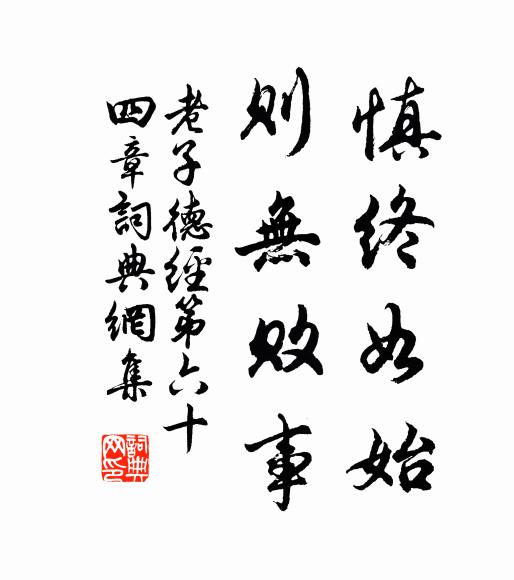 慎終如始
則無敗事
老子德經第六十
四章詞典網集
詞典
网印